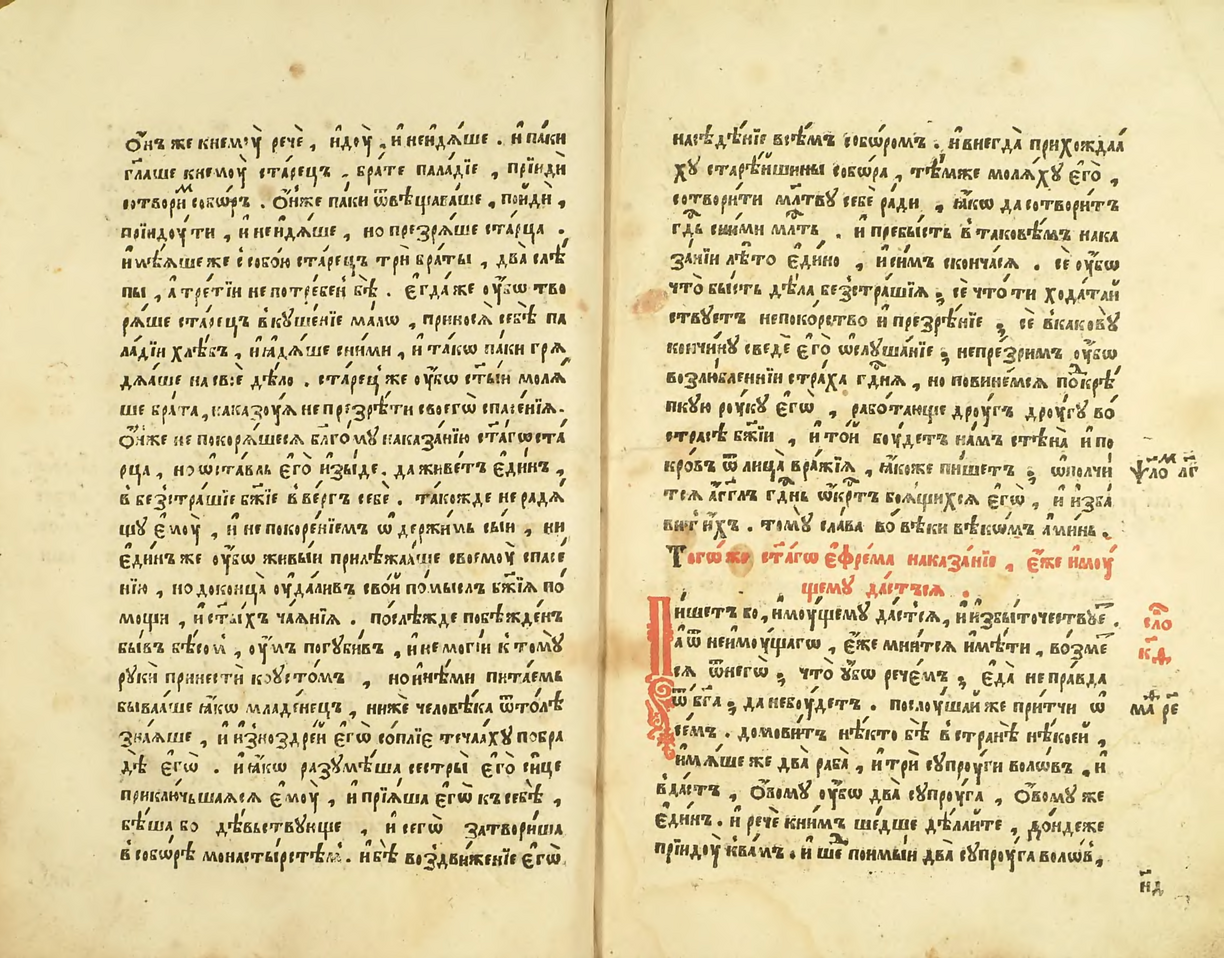 Ѻ҆́нъ же кнемꙋ̀ речѐ , и҆дꙋ̀ , и҆ неидѧ́ше . и҆ па́ки
гл҃аше кнемоу̀ ста́рецъ , бра́те пала́дїе , прїидѝ
сотворѝ собѡ́ръ . Ѻ҆́ниже па́ки ѿвѣщава́ше , пои́ди ,
прїидоу́ ти , и҆ неидѧ́ше , но презрѧ́ше ста́рца .
и҆мѣѧ́ше же ссобо́ю ста́рецъ трѝ бра́ты , два̀ слѣ
пы , а҆ тре́тїи непотре́бенъ бѣ̀ . є҆гда́ же оу҆́бѡ тво
рѧ́ше ста́рецъ вкꙋше́нїе ма́лѡ , приносѧ̀ себѣ̀ па
ла́дїи хлѣ́бъ , и҆ꙗ҆дѧ́ше сни́ми , и҆ та́кѡ па́ки грѧ
дѧ́аше насвоѐ дѣ́ло . ста́рец же оу҆́бѡ ст҃ы́и молѧ́
ше бра́та , наказоуѧ̀ непрезрѣ́ти своегѡ̀ спасе́нїѧ .
Ѻ҆́ниже не покорѧ́шесѧ бл҃го́мꙋ наказа́нїю ст҃а́гѡ ста́
рца , но ѡ҆ста́вль є҆го̀ и҆зы́де . да живе́тъ є҆ди́нъ ,
вбезстра́шїе бж҃їе вве́ргъ себѐ . та́кожде не радѧ́
щꙋ є҆моу̀ , и҆ непокоре́нїемъ ѡ҆держи́мь сы́и , ни
є҆ди́нъ же оу҆́бѡ живы́и прилѣжа́аше своемоу̀ спасе́
нїю , но доконца̀ оу҆дали́въ сво́й по́мыслъ бж҃їѧ по́
мощи , и҆ ст҃ы́хъ ча́ѧнїѧ . послѣ́жде побѣжде́нъ
бы́въ бѣ́сом , оу҆́мъ погꙋби́въ , и҆ немоги́и ктомꙋ̀
рꙋкѝ принестѝ коусто́мъ , но и҆нѣ́ми пита́емь
быва́аше ꙗ҆́кѡ младе́нецъ , ни́же человѣ́ка ѿто́лѣ
зна́ѧше , и҆ и҆зноздре́и є҆гѡ̀ сопли́є теча́ахꙋ побра
дѣ̀ є҆гѡ̀ . и҆ ꙗ҆́кѡ разꙋмѣ́ша сестры̀ є҆го̀ си́це
приключьша́ѧсѧ є҆моу̀ , и҆ прїѧ́ша є҆гѡ̀ къ себѣ̀ ,
бѣ́ша бо дѣ́вьствꙋюще , и҆ сегѡ̀ затвори́ша
всобѡ́рѣ монасты́рстѣмъ . и҆ бѣ̀ воздви́женїе є҆гѡ̀
насѣдѣ́нїе всѣ́мъ собѡ́ромъ . и҆ внегда̀ прихожда́а
хꙋ старѣ́ишины собѡ́ра , тѣ́мже молѧ́хꙋ є҆го̀ ,
сотвори́ти мл҃твꙋ себѐ ра́ди , ꙗ҆́кѡ да сотвори́тъ
гд҇ь сни́ми мл҇ть . и҆ пребы́сть втаковѣ́мъ нака
за́нїи лѣ́то є҆ди́но , и҆ си́мъ сконча́сѧ . сѐ оу҆́бѡ
что̀ бы́сть дѣ́ла безстра́шїѧ ; сѐ что̀ ти хода́таи
ствꙋетъ непоко́рство и҆ презрѣ́нїе ; сѐ вкаковꙋ̀
кончи́нꙋ сведѐ є҆го̀ ѡ҆слꙋша́нїе ; непре́зримъ оу҆́бѡ
возлю́бленнїи стра́ха гд҇нѧ , но пови́немсѧ подкрѣ́
пкꙋю роу́кꙋ є҆гѡ̀ , рабо́тающе дрꙋ́гъ дрꙋ́гꙋ во
стра́сѣ бж҃їи , и҆ то́й боу́детъ на́мъ стѣна̀ и҆ по
кро́въ ѿ лица̀ вра́жїѧ , ꙗ҆́коже пи́шетъ ; ѡ҆полчи́
тсѧ а҆́гг҃лъ гд҇нь ѡ҆́крⷭ҇тъ боѧ́щихсѧ є҆гѡ̀ , и҆ и҆зба́
вит и҆́хъ . томꙋ̀ сла́ва во́ вѣки вѣкѡ́мъ а҆ми́нь .
Тогѡ́же ст҃а́гѡ є҆фре́ма наказа́нїе , є҆́же и҆мꙋ́
щемꙋ да́стьсѧ .
Пи́шет бо , и҆мꙋ́щемꙋ да́стсѧ , и҆ и҆збы́точествꙋе .
а҆ ѿ неимꙋ́щагѡ , є҆́же мни́тсѧ и҆мѣ́ти , во́зме
сѧ ѿнегѡ̀ ; что̀ ᲂу҆́бѡ рече́мъ ; є҆да̀ непра́вда
ѿ бг҃а ; да небоу́детъ . послоу́шаи же при́тчи ѡ
се́мъ . домови́тъ нѣ́кто бѣ̀ встранѣ̀ нѣ́коеи ,
и҆мѧ́ше же два̀ раба̀ , и҆ трѝ сꙋпрꙋ́ги волѡ́въ , и҆
вда́стъ , Ѻ҆́вомꙋ оу҆́бѡ два̀ сꙋпрꙋ́га , Ѻ҆́вомꙋ же
є҆ди́нъ . и҆ речѐ кни́мъ ше́дше дѣ́лаите , до́ндеже
прїидоу̀ ква́мъ . и҆ ше́д пои́мыи два̀ сꙋпрꙋ́га волѡ́въ ,
ѱло́м л҃г
сло
к҃д
мⷶ҇ ре
н҃д